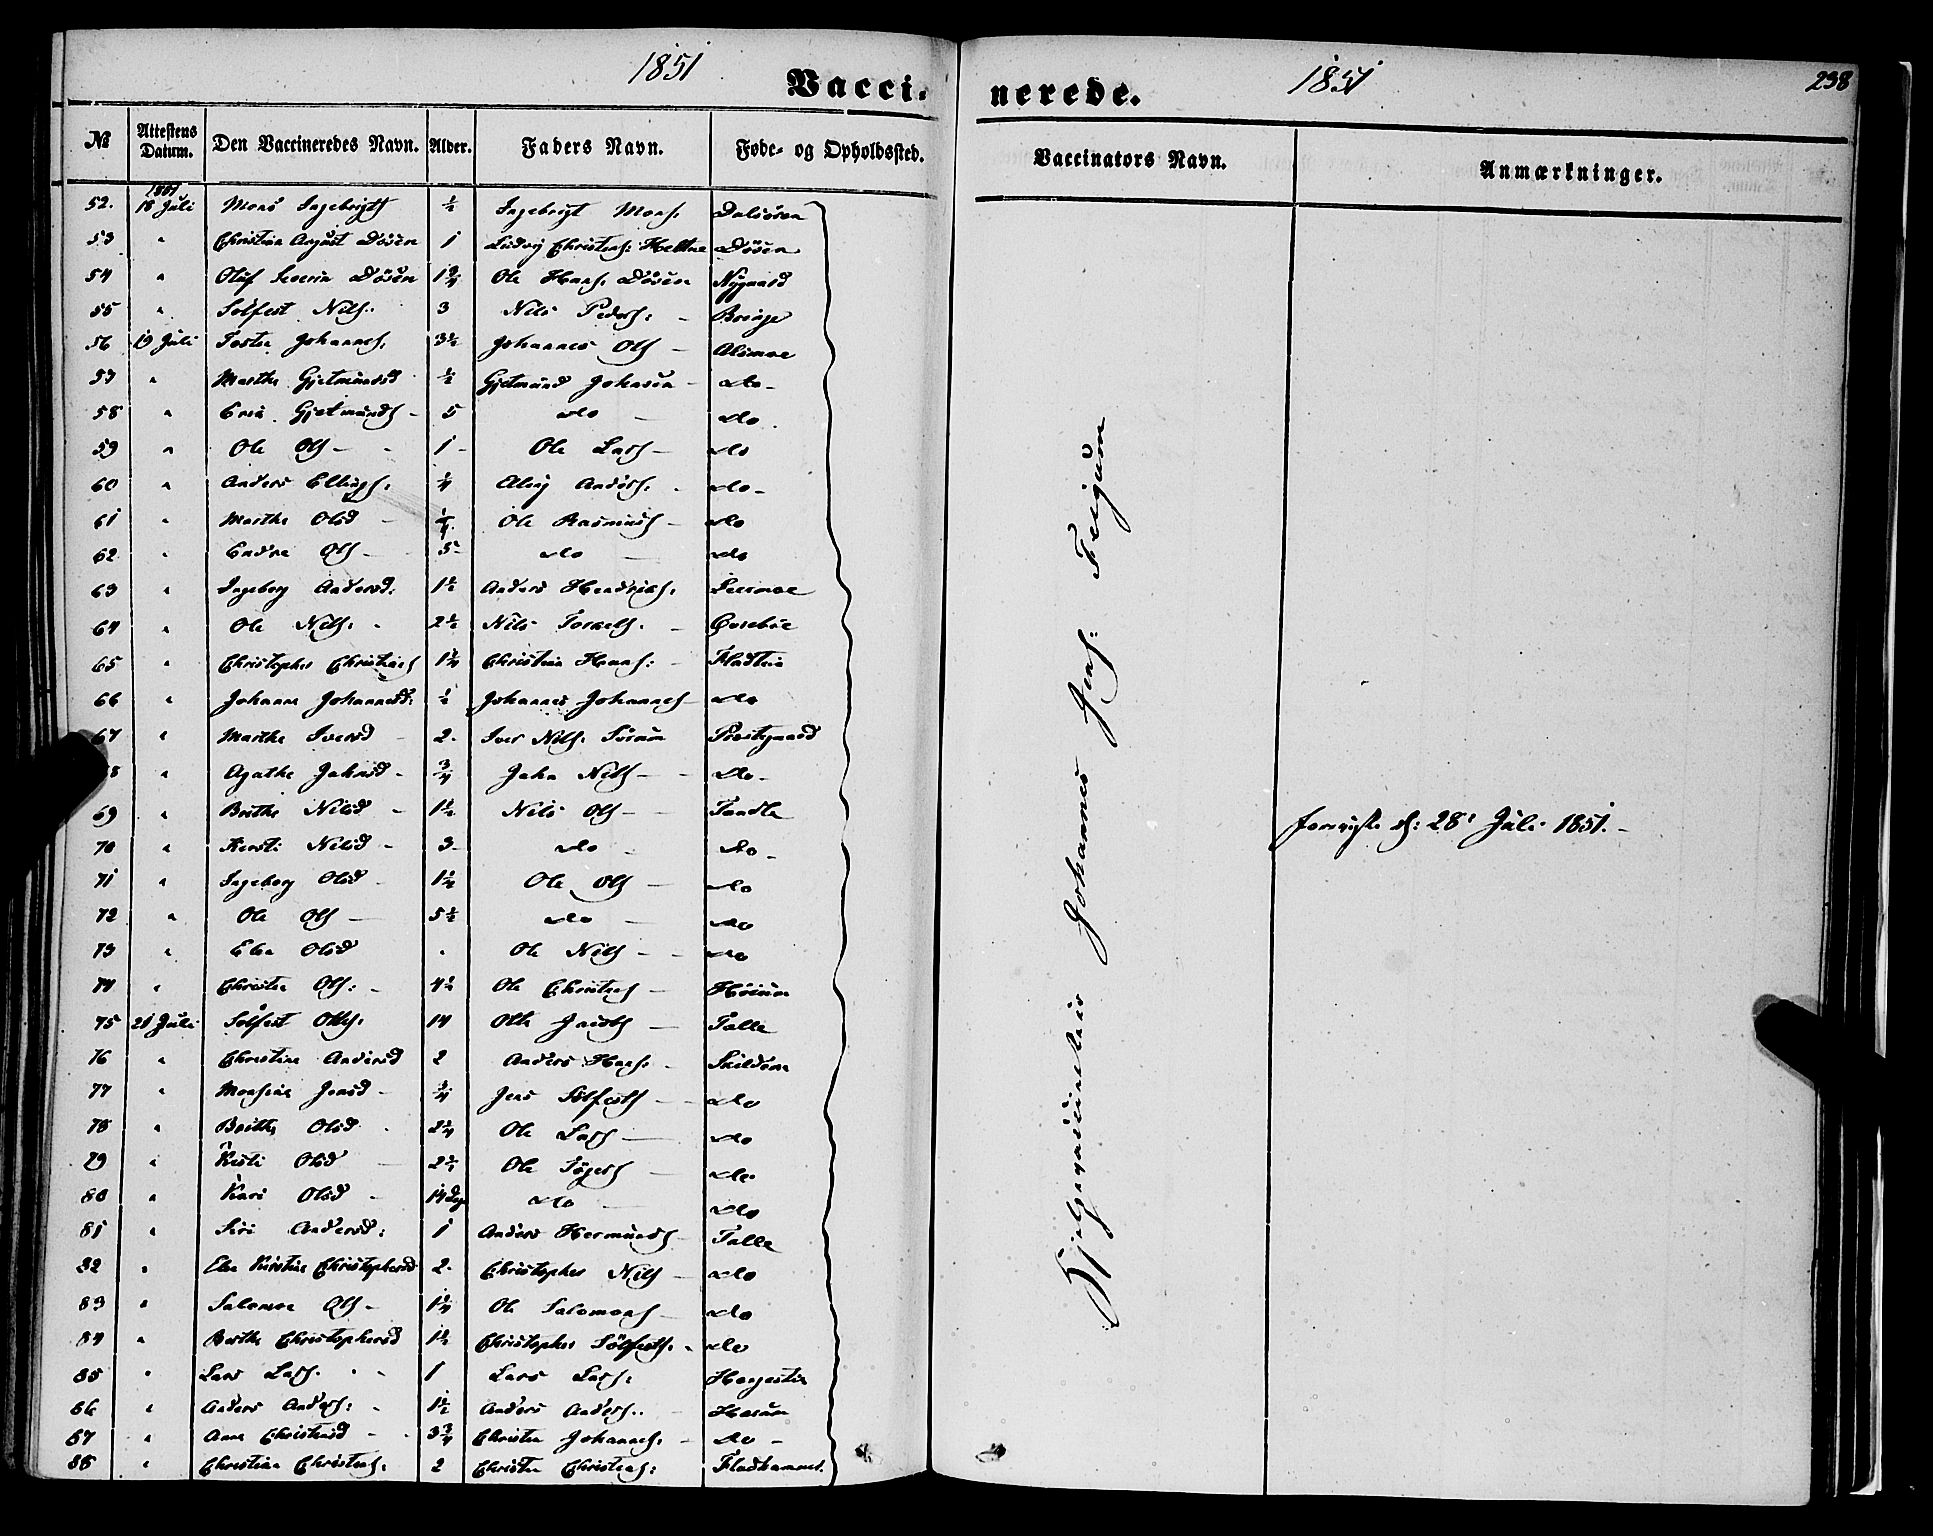 1851
Vacci-
№ Attestens Datum. Den Vaccineredes Navn. Alder. Faders Navn. Føde- og Opholdssted.
1851
52. 18 Juli Mons Ingebrigts ½ Ingebrigt Mons: Dalsøren
53 " Christian August Døsen 1 Ludvig Christens: Heltne Døsen
54 " Oluf Severin Døsen Ole Hans: Døsen Nygaard
55 " Sølfest Nils: 3 Nils Peders: - Bringe
56 19 Juli Johannes: 3½ Johannes Ols - Alsmoe
57 " Marthe Gjetmundsd ½ Gjetmund Johnsen - do-
58 " Gjetmunds - 5 do - do
59 " Ole Ols - - 1 - Ole Lars - do
60 " Anders Ellings: ¼ Anders: - do-
61 " Marthe Olsd - ¼ Ole Rasmus - do
62 " Endre Ols - 5- do - do
63 " Ingeborg Andersd: 1½ Anders Hendriks:
64 " Ole Nils: - 2½ Nils Torkels: - Qvrebøe
65 " Christopher Christians 1¾ Christian Hans: -
66 " Johanne Johannesd: ½ Johannes Johannes - do
67 " Marthe Iversd - 2- Iver Nils: Sørum Prestgaard
68 " Agathe Johnsd - ¾ John Nils - - do-
69 " Brithe Nilsd - 1½ Nils Ols - - Tandle
70 " Kersti Nilsd - 3- do - do -
71 " Ingeborg Olsd - 1½ Ole Ols - do
72 " Ole Ols - 5½ do - do
73 " Elen Olsd - Ole Nils - - do
74 " Christen Ols: - 4½ Ole Christens - Høium
75 21 Juli Sølfest Ottes: 14 Otte Jacobs - Talle
76 " Christine Andersd 2 Anders Hans: - Skildem
77 " Monsine Jensd - ¾ Jens Sølfests - do
78 " Brithe Olsd - 2¼ Ole Lars - do
79 " Kisti Olsd - Ole - do-
80 " Kari Olsd - 14 dage do - do
81 " Siri Andersd: 1 Anders Hermunds - Talle
82 " Else Kirstine Christophersd 2- Christopher Nils - do
83 " Salomon Ols - 1¾ Ole Salomons - do
84 " Berthe Christophersd 1½ Christopher Sølfests: - do
85 " Lars Lars: - - 1 Lars Lars:
86 " Anders Anders: - 1½ Anders Anders: -
87 " Anne Christensd - - 3¾ Christen Johannes: - do -
88 " Christian Christens: 2 Christen Christens: Fladhammer.
1851
238
nerede.
Vaccinators Navn. Anmærkninger.
Hjelpevaccinateur Johannes Jens: Feigum
28' Juli 1851. -